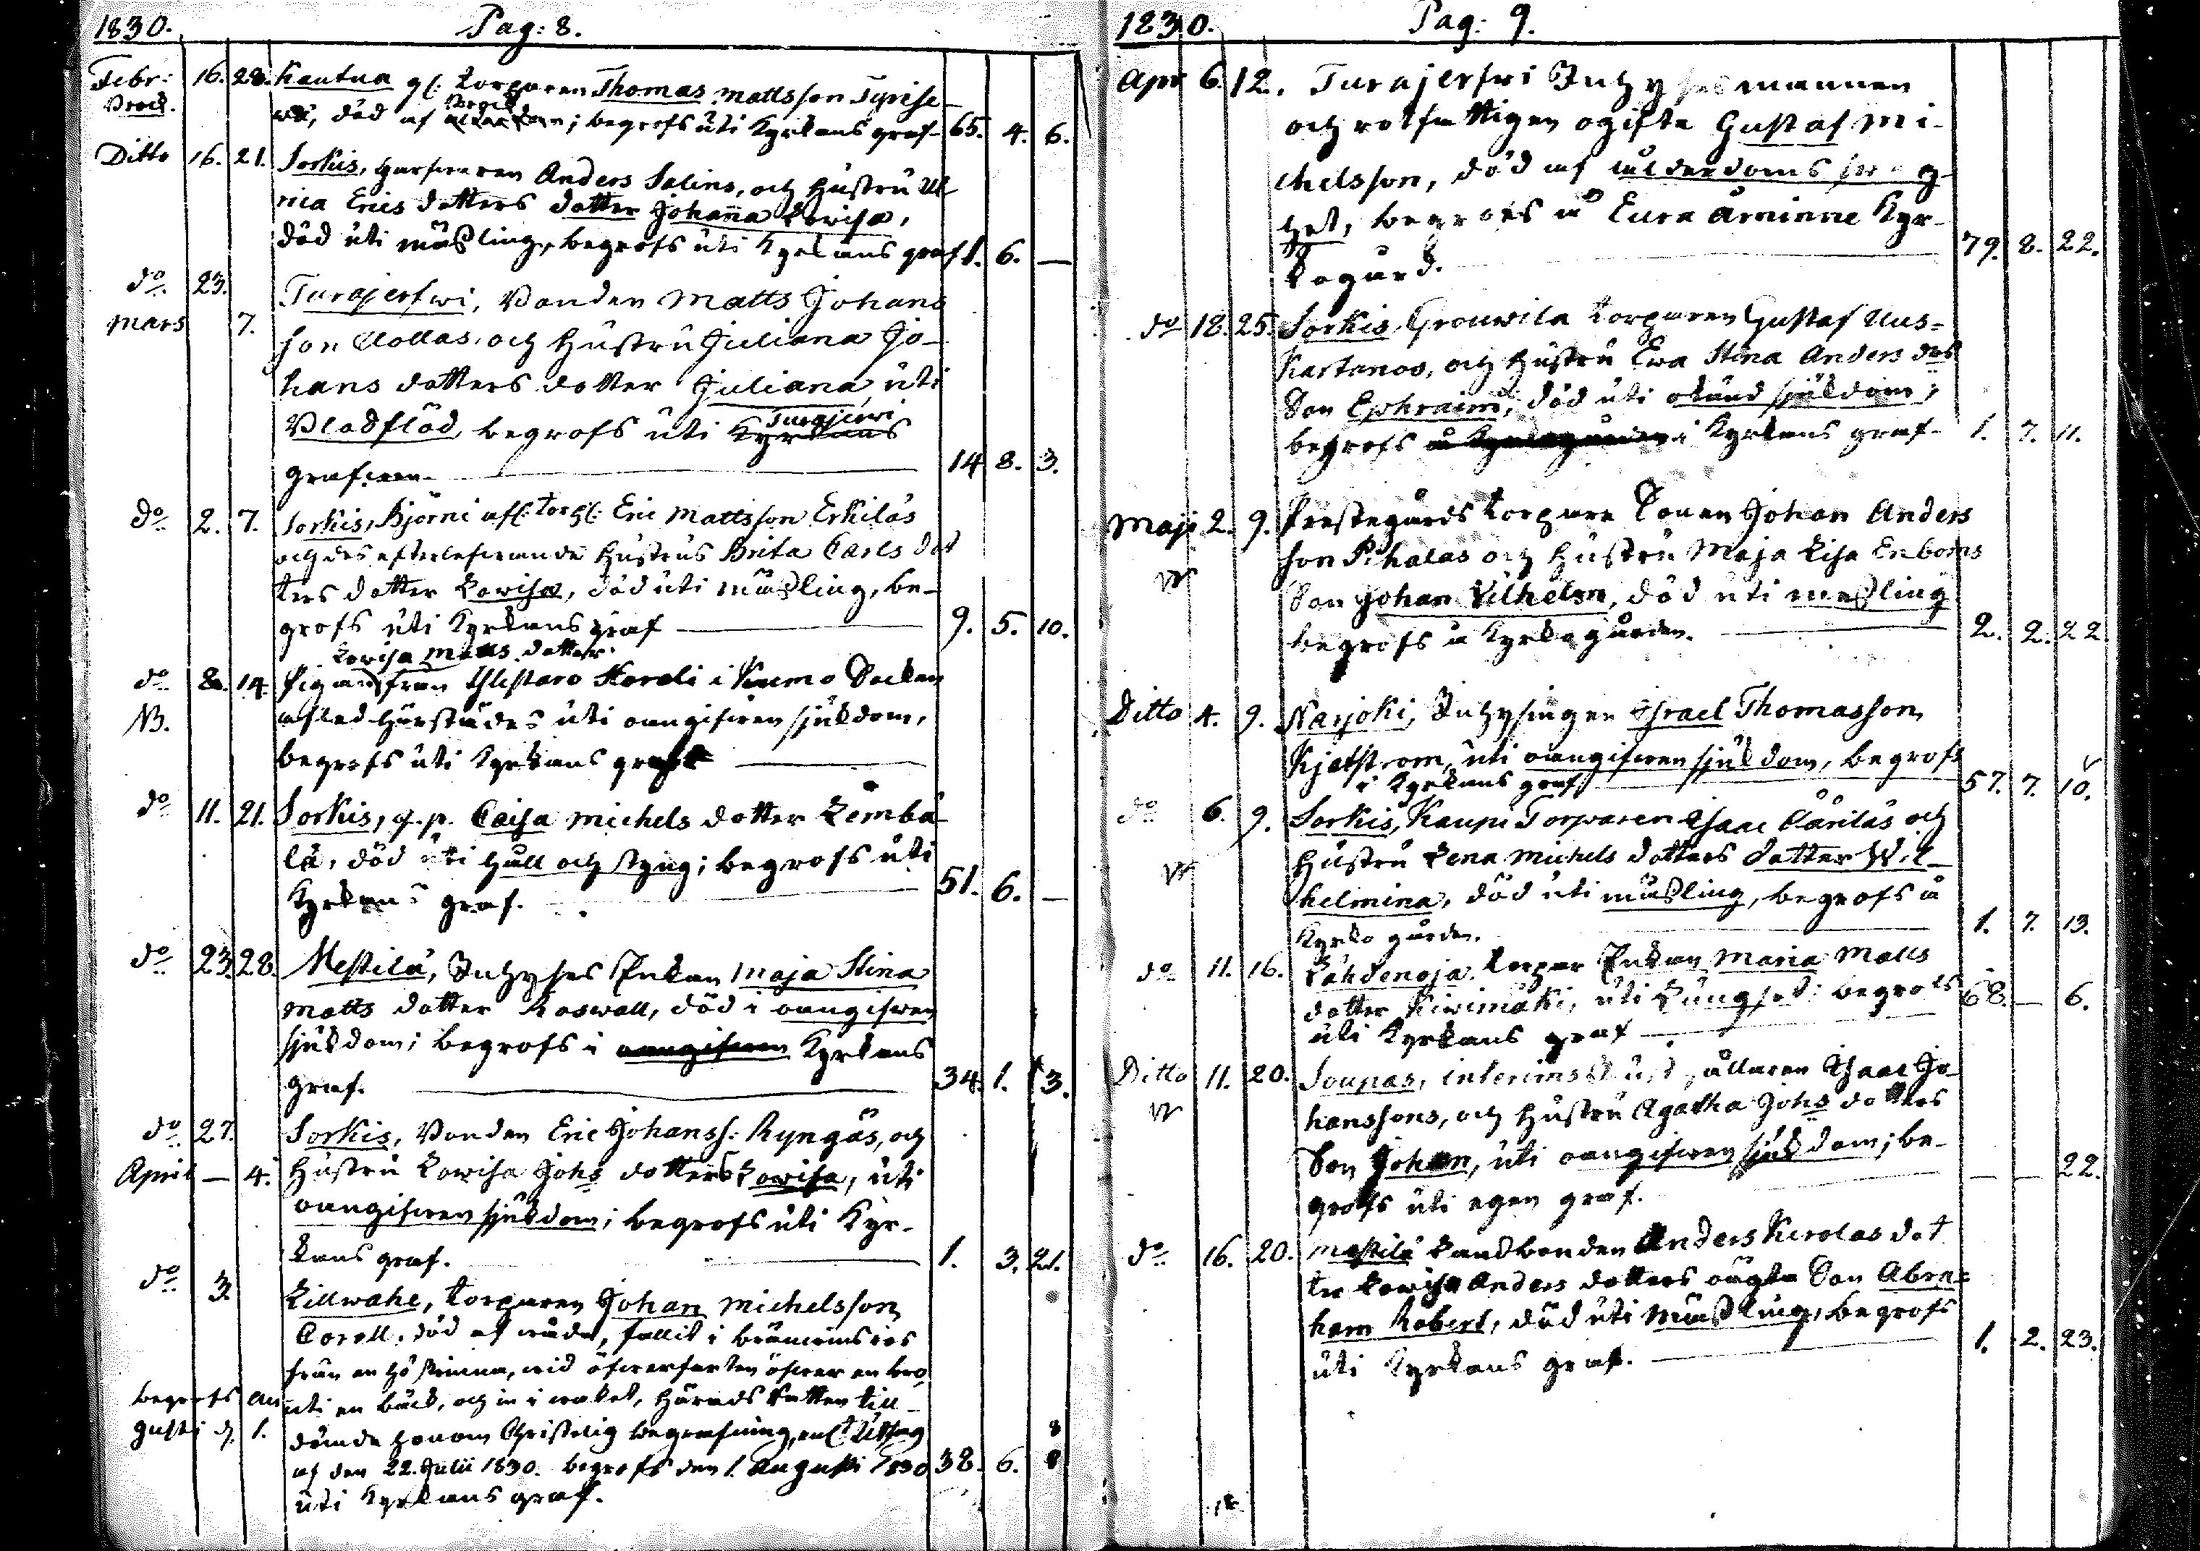 1830. Pag: 8.
Febr: 16. 28. Kautua gl. Torparen Thomas Mattsson Tyrise-
död af begrofs uti Kyrkans graf 65. 4. 6.
Ditto 16. 21. Sorkis, Anders Salins, och Hustru Ul
rica Erics dotters dotter Johanna Lovisa,
död uti mäsling, begrofs uti Kyrkans graf 1. 6. —
do 23. Turajerfwi, Bonden Matts Johans
mars 7. son och Hustru Juliana Jo-
hans dotters dotter Juliana, uti
Blodflöd, begrofs uti Kyrkans
Turajerwi
14 8. 3.
do 2. 7. Sorkis, Björni afl. Eric Mattsson Erkilas
och des efterlefwande Hustrus Brita Carls dot
ters dotter Lovisa, död uti mäsling, be-
grofs uti Kyrkans graf — 9. 5. 10.
Lovisa Matts dotter
do 8. 14. Pigan från i Kumo Socken
NB. afled härstädes uti oangifwen sjukdom,
begrofs uti Kyrkans graf —
do 11. 21. Sorkis, g. p. Caisa Michels dotter Lemba
lä, död uti håll och styng; begrofs uti
Kyrkans graf. 51. 6. —
do 23. 28. Mestilä, Inhyses Enkan Maja Stina
Matts dotter Roswall, död i oangifwen
sjukdom; begrofs i oangifwen Kyrkans
graf. 34. 1. 3.
do 27. Sorkis, Bonden Eric Johanss: Ryngäs, och
April — 4. Hustru Lovisa Johs dotters Lovisa, uti
oangifwen sjukdom; begrofs uti Kyr-
kans graf. 1. 3. 21.
do 3. Lillwahe, Torparen Johan Michelsson
Corell, död af wåda, fallit i
från en hö skrinna, wid öfwerfarten öfwer en bro
begrofs au uti en bäck, och in i waket, Härads Rätten till-
gusti d. 1. dömde honom Christelig begrafning, enl. Utslag
af den 22. Julii 1830. begrofs den 1. Augusti 1830 38. 6. 8
uti Kyrkans graf.
1830. Pag: 9.
Apr 6. 12. Turajerfwi Inhysesmannen
och rotfattigen ogifte Gustaf Mi-
chelsson, död af ålderdoms swag-
het, begrofs å Eura Åminne Kyr-
kogård. 79. 8. 22.
do 18. 25. Sorkis, Grouwila Torparen Gustaf Uus-
Kartanos, och Hustru Ewa Stina Anders dos
Son Ephraim, död uti okänd sjukdom;
begrofs å Kyrkogården i Kyrkans graf 1. 7. 11.
Maji 2. 9. Prestegårds Torpare Johan Anders
son Pihalas och Hustru Maja Lisa Enboms
Son Johan Vilhelm, död uti mesling
begrofs å Kyrkogården. 2. 2. 22
Ditto 4. 9. Narjoki, Inhysingen Israel Thomasson
Kjetström, uti oangifwen sjukdom, begrofs
i Kyrkans graf 57. 7. 10.
do 6. 9. Sorkis, Kaupi Torparen Isaac och
Hustru Lena Michels dotters dotter Wil-
helmina, död uti mäsling, begrofs å
Kyrko gården. 1. 7. 13.
do 11. 16. Lähdenoja, Torpar Enkan Maria Matts
dotter Kiwimäki, uti Lungsot; begrofs 68. — 6.
uti Kyrkans graf —
Ditto 11. 20. Soupas, interims Isaac Jo-
hanssons, och Hustru Agatha Johs dotters
Son Johan, uti oangifwen sjukdom; be-
grofs uti egen graf. — — 22.
do 16. 20. Mestilä Landbonden Anders Kerolas dot
ter Lovisa Anders dotters oägta Son Abra=
ham Robert, död uti Mäsling, begrofs
uti Kyrkans graf. — 1. 2. 23.